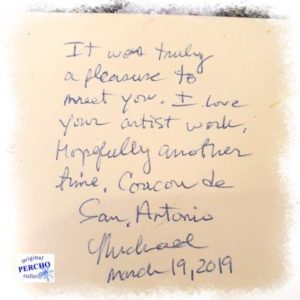 It was truly
a pleasure to
meet you. I love
your artist work,
Hopefully another
time. Corazon de
San Antonio
Michael
March 19, 2019
original
PERCHO
collect